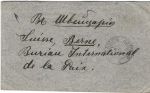 Въ Швейцарію
Suisse, Berne,
Bureau International
de la Paix.